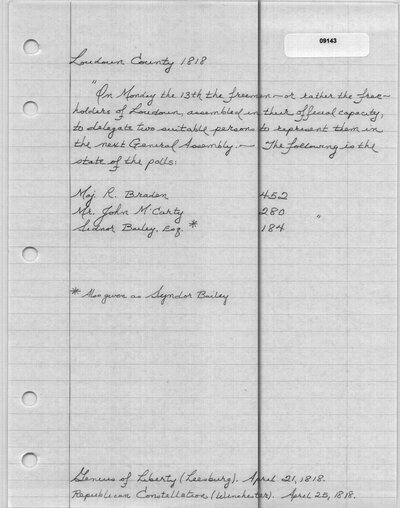 09143
Loudoun County 1818
"On Monday the 13th the freemen - or rather the free-
holders of Loudoun, assembled in their official capacity,
to delegate two suitable persons to represent them in
the next General Assembly. — The following is the
state of the polls:
Maj. R. Braden 452
Mr. John McCarty 280 "
Sidnor Bailey, Esq. * 184
* Also given as Syndor Bailey
Genius of Liberty (Leesburg). April 21, 1818.
Republican Constellation (Winchester). April 25, 1818.